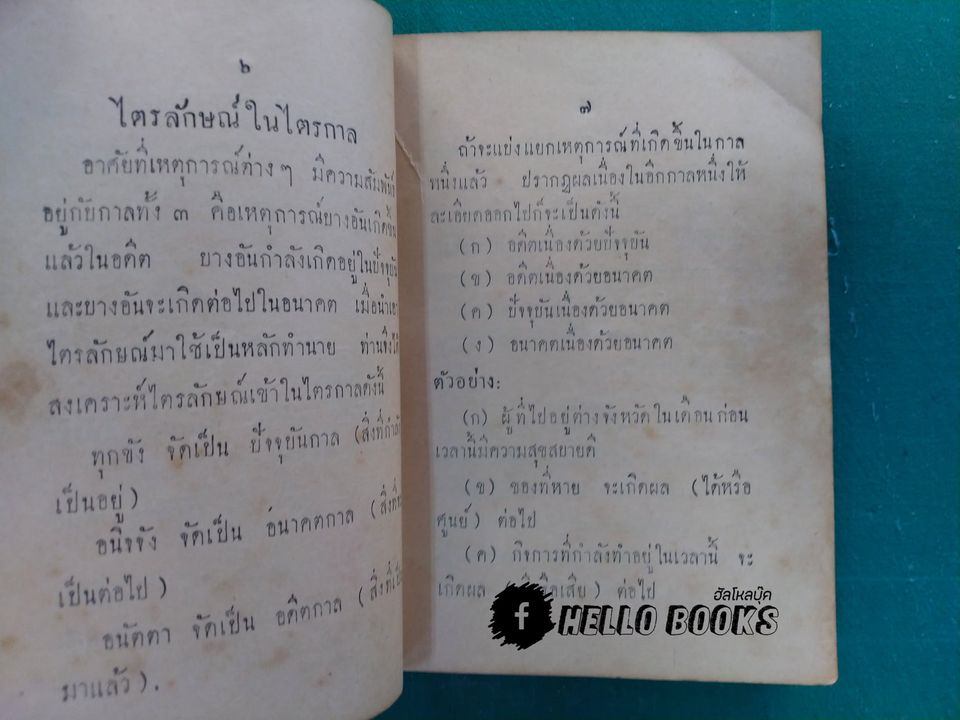 ๖
ไตรลักษณ์ในไตรกาล
อาศัยที่เหตุการณ์ต่าง ๆ มีความสัมพันธ์
อยู่กับกาลทั้ง ๓ คือเหตุการณ์บางอันเกิดขึ้น
แล้วในอดีต บางอันกำลังเกิดอยู่ในปัจจุบัน
และบางอันจะเกิดต่อไปในอนาคต เมื่อนำเอา
ไตรลักษณ์มาใช้เป็นหลักทำนาย ท่านจึงได้
สงเคราะห์ไตรลักษณ์เข้าในไตรกาลดังนี้
ทุกขัง จัดเป็น ปัจจุบันกาล (สิ่งที่กำลัง
เป็นอยู่)
อนิจจัง จัดเป็น อนาคตกาล (สิ่งที่
เป็นต่อไป)
อนัตตา จัดเป็น อดีตกาล (สิ่งที่
มาแล้ว).
๗
ถ้าจะแบ่งแยกเหตุการณ์ที่เกิดขึ้นในกาล
หนึ่งแล้ว ปรากฏผลเนื่องในอีกกาลหนึ่งให้
ละเอียดออกไปก็จะเป็นดังนี้
(ก) อดีตเนื่องด้วยปัจจุบัน
(ข) อดีตเนื่องด้วยอนาคต
(ค) ปัจจุบันเนื่องด้วยอนาคต
(ง) อนาคตเนื่องด้วยอนาคต
ตัวอย่าง:
(ก) ผู้ที่ไปอยู่ต่างจังหวัดในเดือนก่อน
เวลานี้มีความสุขสบายดี
(ข) ของที่หาย จะเกิดผล (ได้หรือ
ศูนย์) ต่อไป
(ค) กิจการที่กำลังทำอยู่ในเวลานี้ จะ
เกิดผล ต่อไป
ฮัลโหลบุ๊ค
f HELLO BOOKS